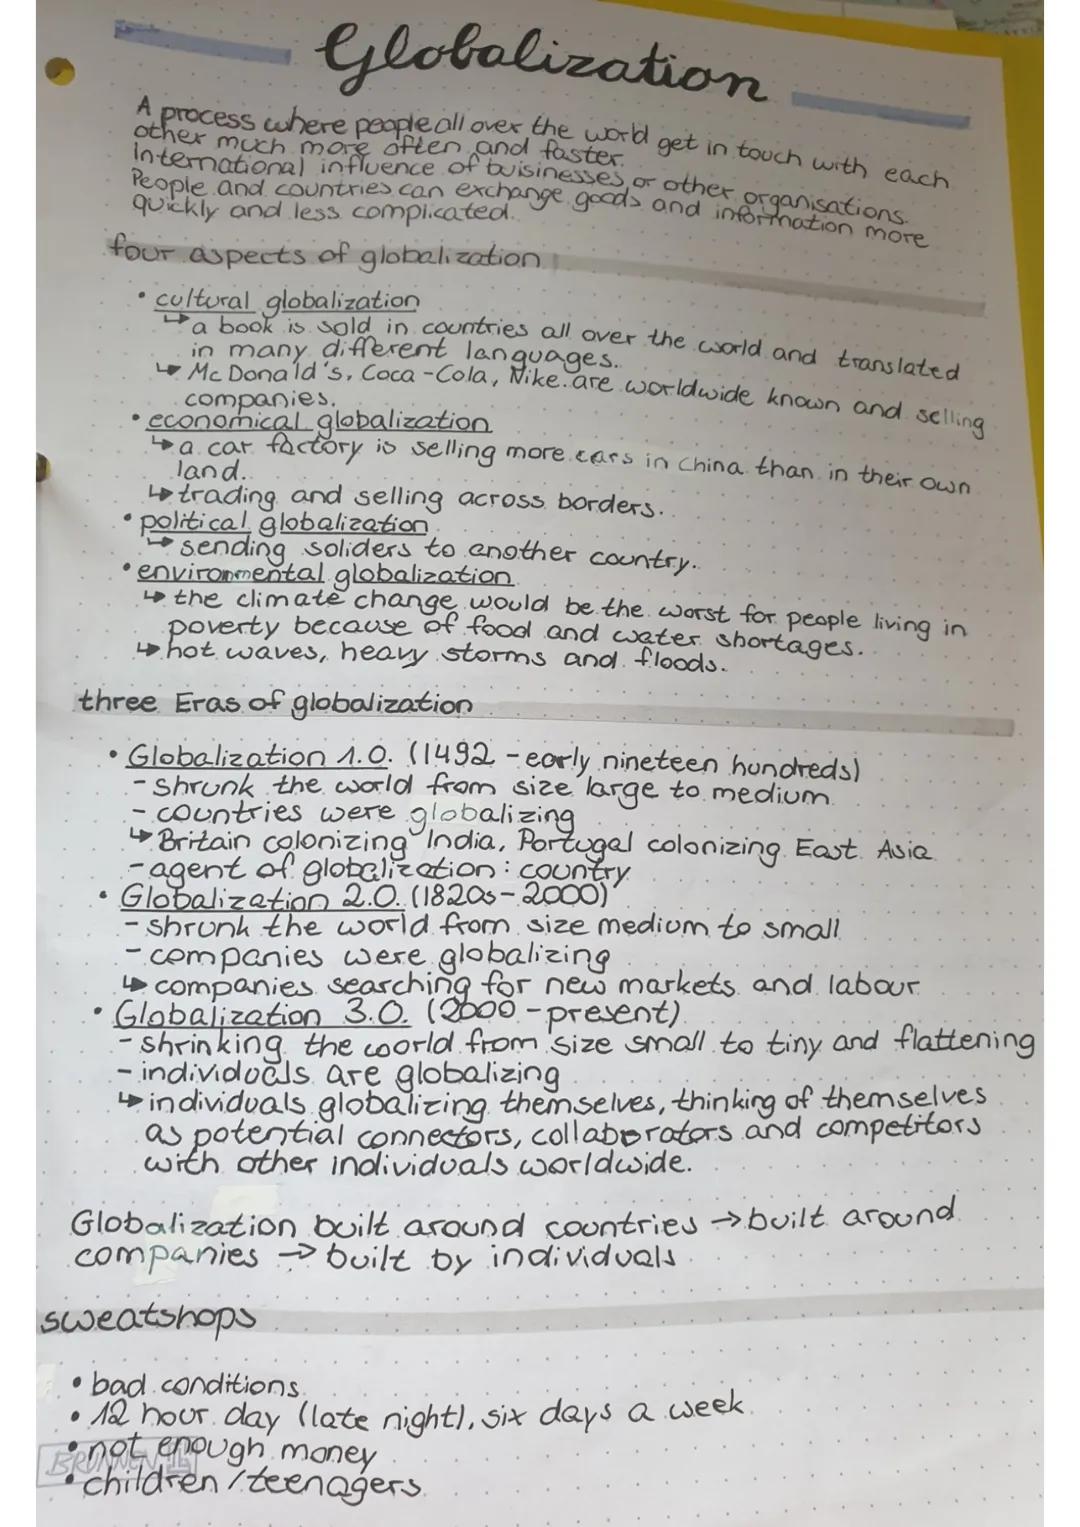 Globalization
A process where people all over the world get in touch with each
other much more often and faster.
International influence of buisinesses, or other organisations.
People and countries can exchange goods and information more
quickly and less complicated.
four aspects of globalization
• cultural globalization
↳ a book is sold in countries all over the world and translated
in many different languages.
↳ Mc Donald's, Coca-Cola, Nike are worldwide known and selling
companies.
• economical globalization
↳ a car factory is selling more cars in China than in their own
land.
↳ trading and selling across borders.
• political globalization
↳ sending soliders to another country.
• environmental globalization
↳ the climate change would be the worst for people living in
poverty because of food and water shortages.
↳ hot waves, heavy storms and floods.
three Eras of globalization
• Globalization 1.0. (1492 - early nineteen hundreds)
- shrunk the world from size large to medium
- countries were globalizing
↳ Britain colonizing India, Portugal colonizing East Asia
- agent of globalization: country
• Globalization 2.0. (1820s - 2000)
- shrunk the world from size medium to small
- companies were globalizing
↳ companies searching for new markets and labour
• Globalization 3.0. (2000 - present)
- shrinking the world from size small to tiny and flattening
- individuals are globalizing
↳ individuals globalizing themselves, thinking of themselves
as potential connectors, collaborators and competitors
with other individuals worldwide.
Globalization built around countries → built around
companies → built by individuals
sweatshops
• bad conditions
• 12 hour day (late night), six days a week
• not enough money
BRUNNEN
• children / teenagers